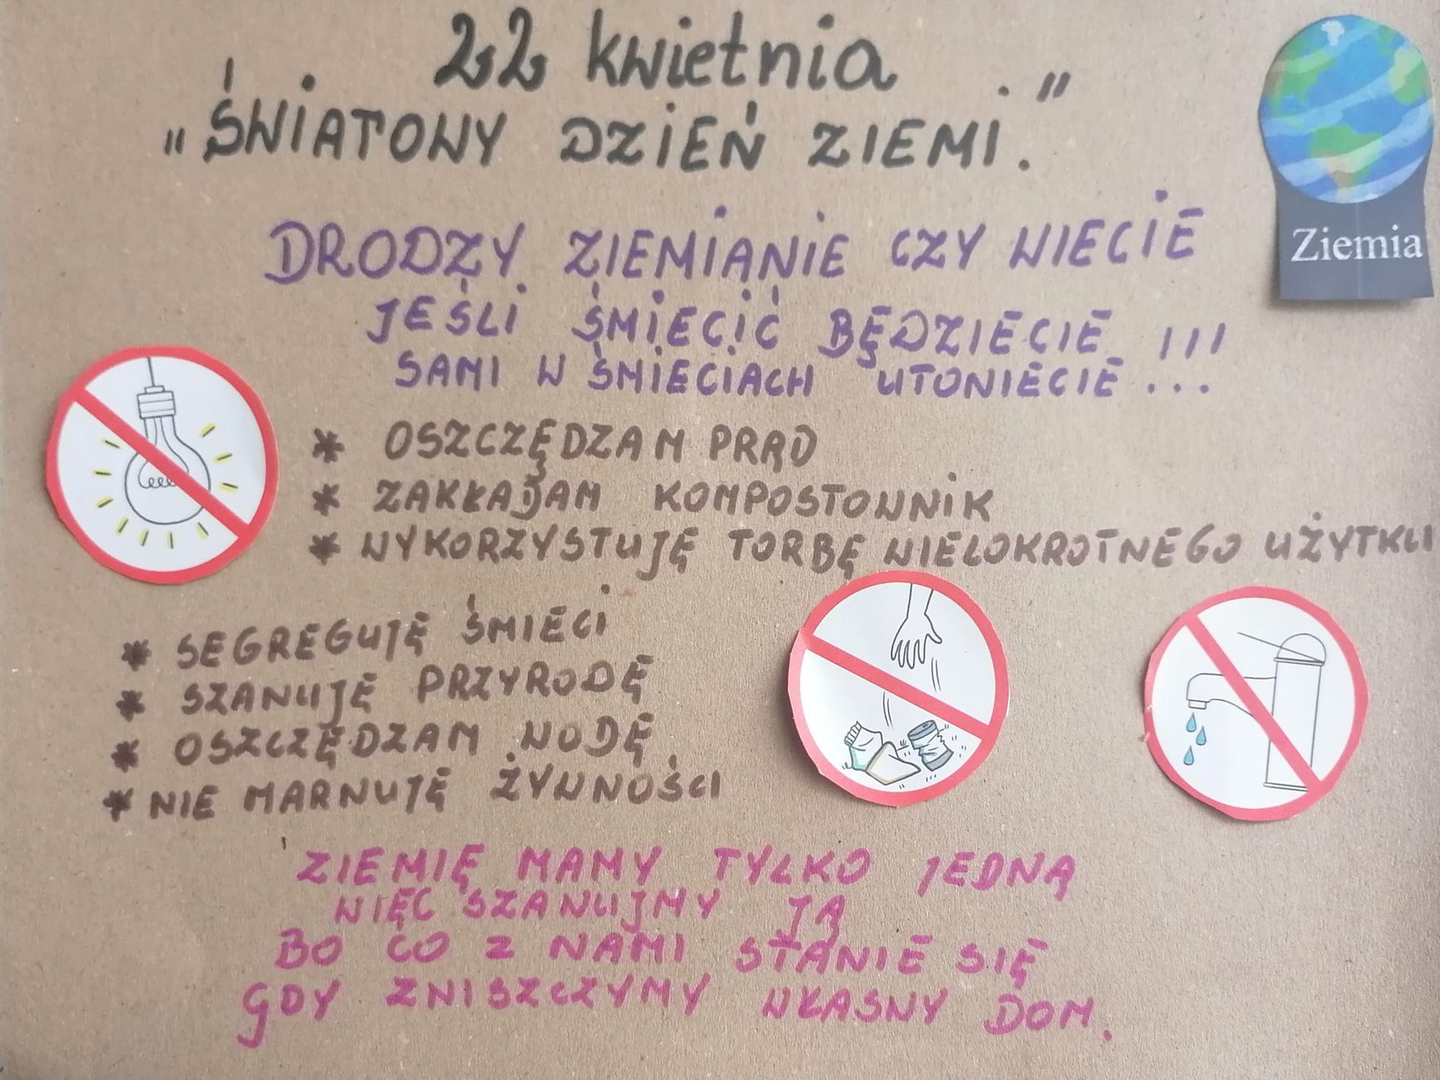 22 kwietnia
„ŚWIATOWY DZIEŃ ZIEMI."
Ziemia
DRODZY ZIEMIANIE CZY WIECIE
JEŚLI ŚMIECIĆ BĘDZIECIE !!!
SAMI W ŚMIECIACH UTONIECIE...
* OSZCZĘDZAM PRĄD
* ZAKŁADAM KOMPOSTOWNIK
* WYKORZYSTUJĘ TORBĘ WIELOKROTNEGO UŻYTKU
* SEGREGUJĘ ŚMIECI
* SZANUJĘ PRZYRODĘ
* OSZCZĘDZAM WODĘ
* NIE MARNUJĘ ŻYWNOŚCI
ZIEMIĘ MAMY TYLKO JEDNĄ
WIĘC SZANUJMY JĄ
BO CO Z NAMI STANIE SIĘ
GDY ZNISZCZYMY WŁASNY DOM.